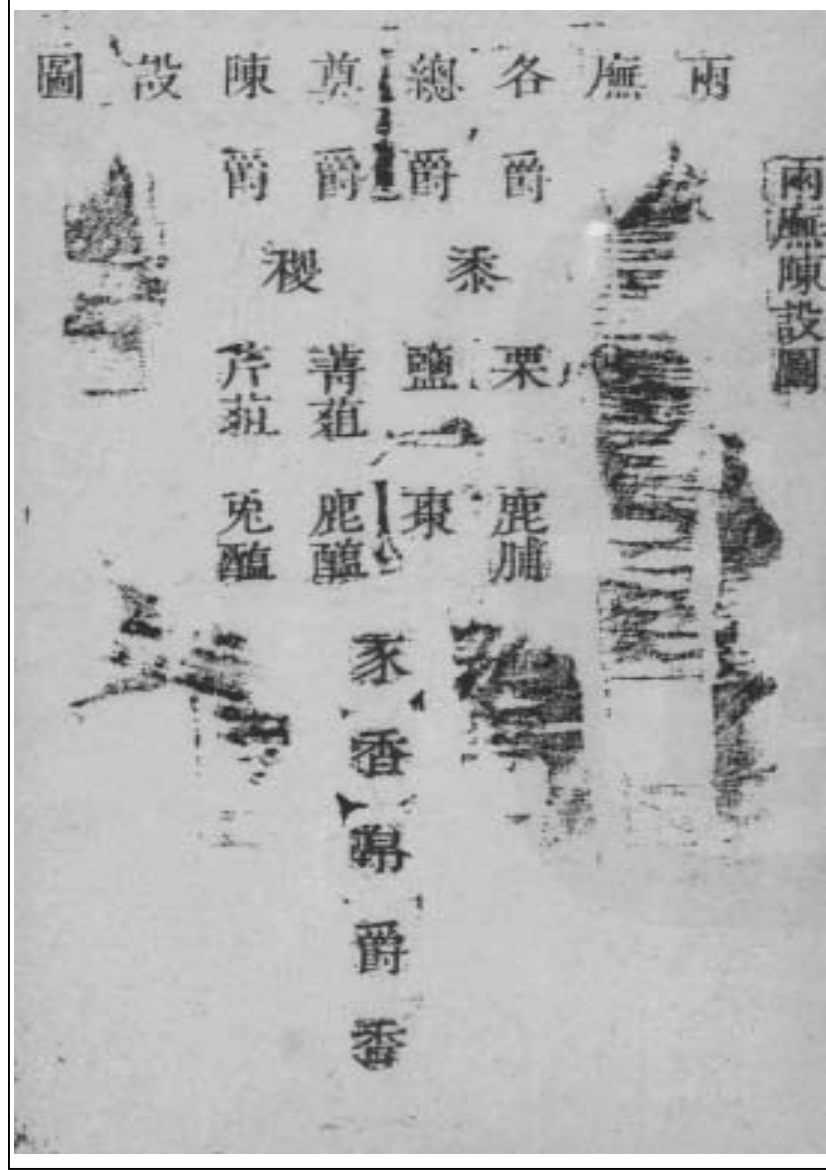 兩廡陳設圖
兩廡各總奠陳設圖
爵 爵 爵 爵
黍 稷
栗 鹽 菁菹 芹菹
鹿脯 棗 鹿醢 兎醢
豕
香
帛
爵
香